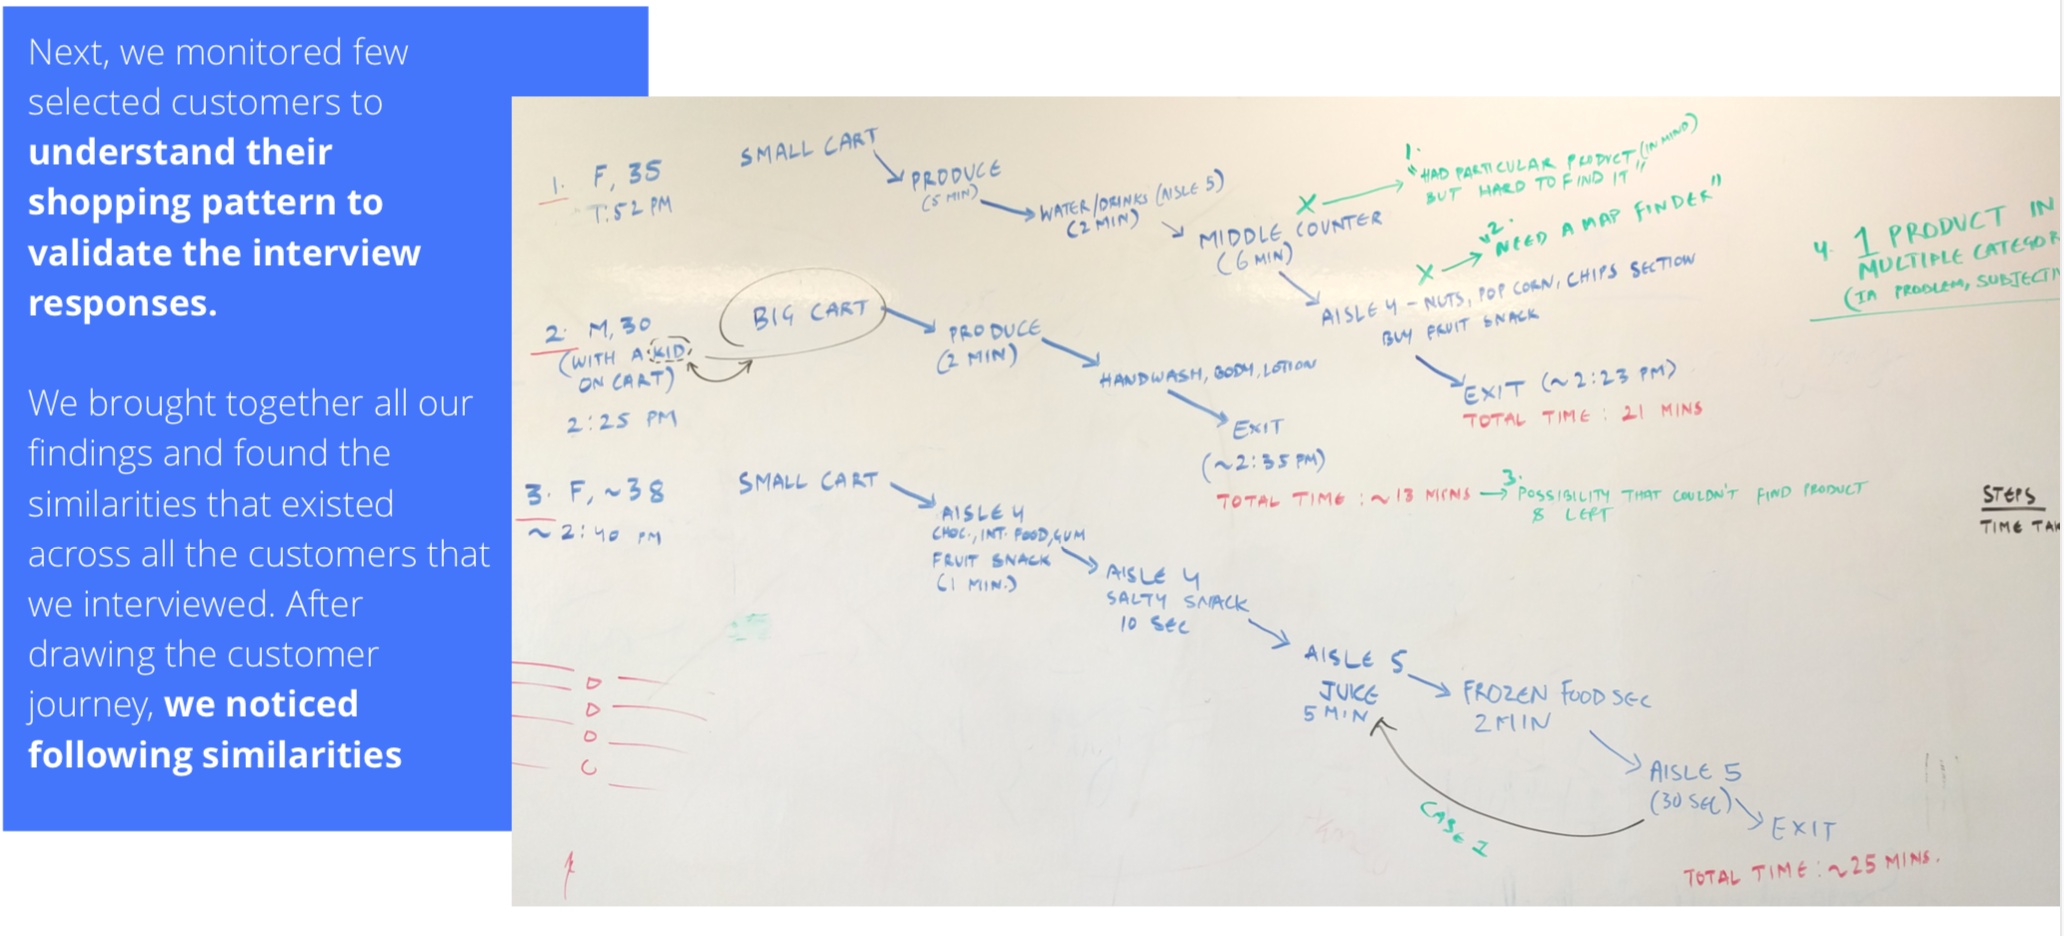 Next, we monitored few
selected customers to
understand their
shopping pattern to
validate the interview
responses.
We brought together all our
findings and found the
similarities that existed
across all the customers that
we interviewed. After
drawing the customer
journey, we noticed
following similarities
1. F, 35
T:52 PM
SMALL CART
PRODUCE
(5 MIN)
WATER/DRINKS (AISLE 5)
(2 MIN)
MIDDLE COUNTER
(6 MIN)
X
1.
"HAD PARTICULAR PRODUCT (IN MIND)
BUT HARD TO FIND IT"
X
2.
"NEED A MAP FINDER"
AISLE 4 - NUTS, POP CORN, CHIPS SECTION
BUY FRUIT SNACK
EXIT (~2:23 PM)
TOTAL TIME : 21 MINS
4. 1 PRODUCT IN
MULTIPLE CATEGOR
(IA PROBLEM, SUBJECTIV
2. M, 30
(WITH A KID
ON CART)
2:25 PM
BIG CART
PRODUCE
(2 MIN)
HANDWASH, BODY, LOTION
EXIT
(~2:35 PM)
TOTAL TIME : ~13 MINS
3.
POSSIBILITY THAT COULDN'T FIND PRODUCT
& LEFT
3. F, ~38
~ 2:40 PM
SMALL CART
AISLE 4
CHOC., INT. FOOD, GUM
FRUIT SNACK
(1 MIN.)
AISLE 4
SALTY SNACK
10 SEC
AISLE 5
JUICE
5 MIN
FROZEN FOOD SEC
2 MIN
AISLE 5
(30 SEC)
EXIT
CASE 1
TOTAL TIME : ~25 MINS.
STEPS
TIME TAK